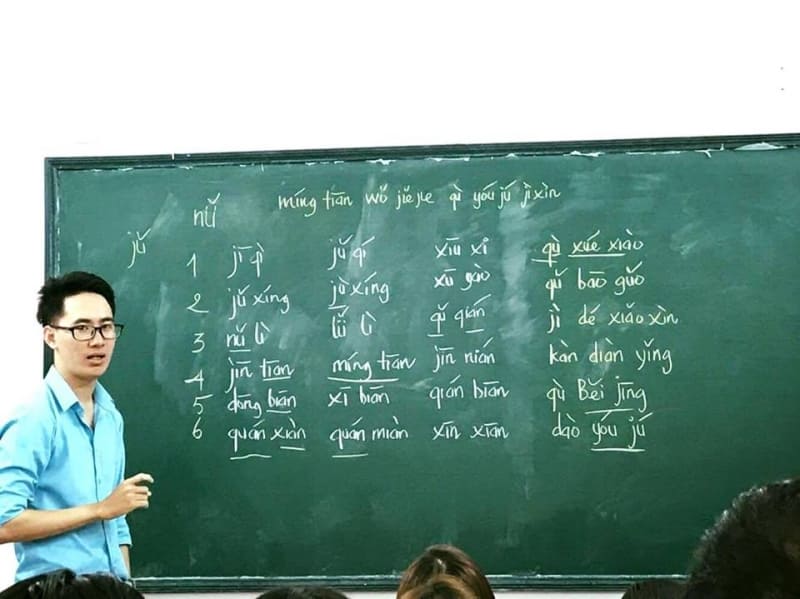 míng tiān wǒ jiějie qù yóu jú jì xìn
nǚ
jǔ
1 jī qì jǔ qí xiū xi qù xué xiào
2 jǔ xíng jù xíng xū gào qǔ bāo guǒ
3 nǔ lì lǜ lì qǔ qián jì dé xiǎo xìn
4 jīn tiān míng tiān jīn nián kàn diàn yǐng
5 dōng biān xī biān qián biān qù Běi jīng
6 quán xiàn quán miàn xīn xiān dào yóu jú